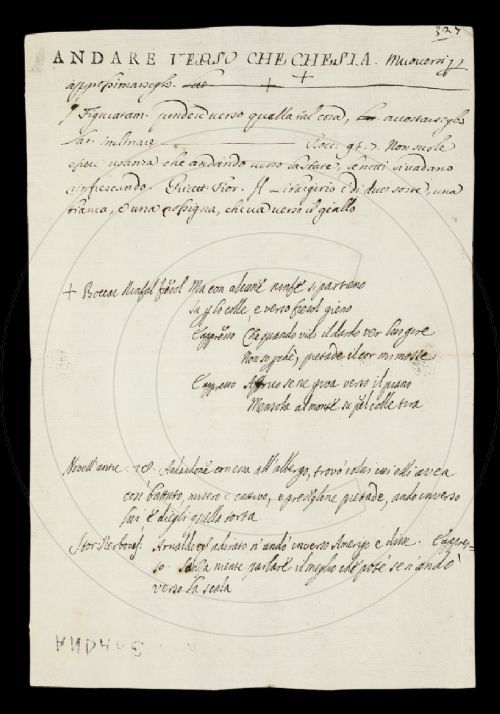 327
ANDARE VERSO CHECHESIA. Muoversi
appressimarsegli.
¶ Figuratam. pendere verso quella tal cosa, accostarsegli
Bocc. g. 7. Non suole
essere usanza che andando verso la state, le notti si vadano
rinfrescando. Ricett. Fior. Il è di due sorte, una
bianca, e una che va verso il giallo
+ Boccac Ninfal Fiesol Ma con alcune ninfe si partiro
su lo colle, e verso Fiesol gieno
E appresso Che quando vidi il dardo ver lui gire
Non so perchè, pietade il cor mi mosse
E appresso Affrico se ne giva verso il piano
Mensola al monte su pel colle tira
Novell antic. 78. Andandone con essa all'albergo, trovò colui cui elli avea
così battuto, misero e cattivo, e preseglene pietade, andò inverso
lui e diegli quella torta
Stor. Nerbones. Arnaldo adirato n'andò inverso Amerigo e disse. E appres=
so. mente parlare il meglio che potè se n'andò
verso la scala
ANDARE